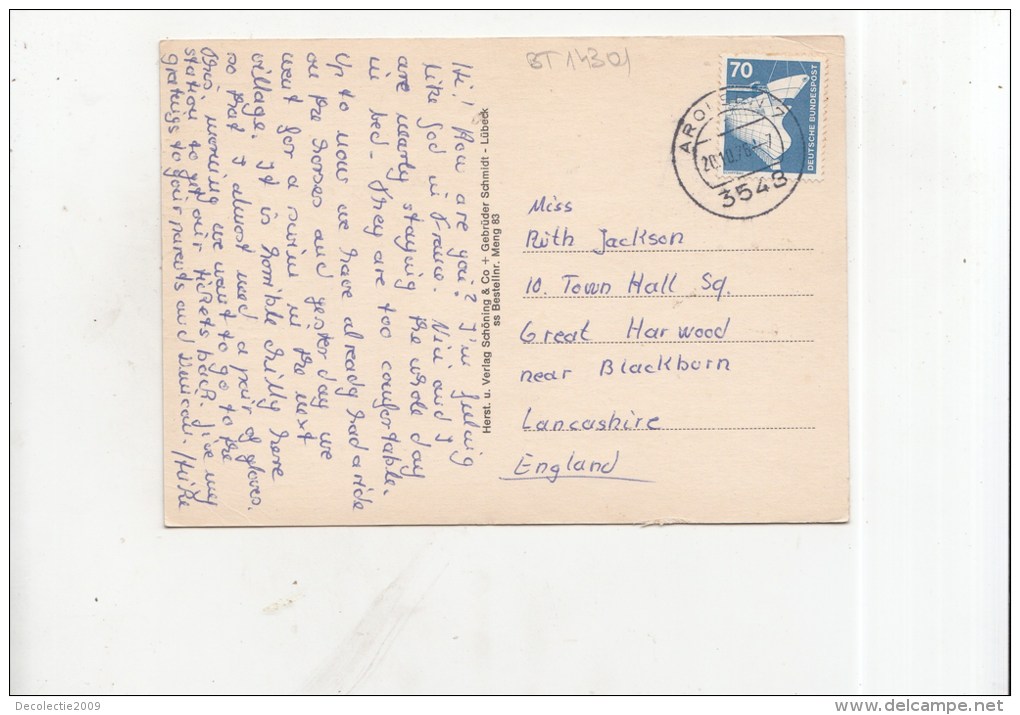 BT 14301
70
DEUTSCHE BUNDESPOST
AROLSEN
20.10.76
3548
Hi! How are you? I'm feeling
like God in France. Nici and I
are nearly staying the whole day
in bed. They are too comfortable.
Up to now we have already had a ride
on the horses and yesterday we
went for a swim in the next
village. It is horrible chilly here
so that I almost need a pair of gloves.
this morning we want to go to the
station to get our tikets back. Give my
gretings to your parents and Duncan. Heike
Herst. u. Verlag Schöning & Co + Gebrüder Schmidt - Lübeck
ss Bestellnr. Meng 83
Miss
Ruth Jackson
10. Town Hall Sq.
Great Harwood
near Blackborn
Lancashire
England
Decolectie2009
delcampe.net